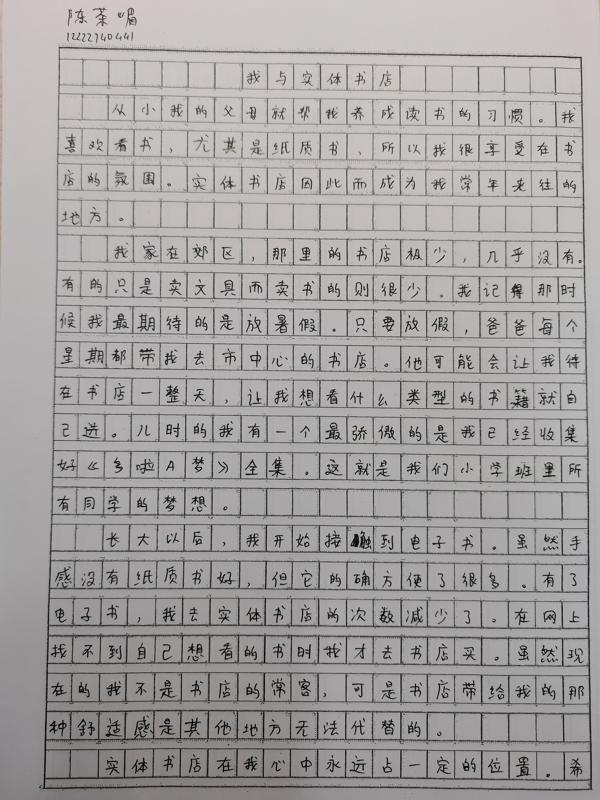 陈茶嵋
12222740441
我与实体书店
从小我的父母就帮我养成读书的习惯。我
喜欢看书，尤其是纸质书，所以我很享受在书
店的氛围。实体书店因此而成为我常年来往的
地方。
我家在郊区，那里的书店极少，几乎没有。
有的只是卖文具而卖书的则很少。我记得那时
候我最期待的是放暑假。只要放假，爸爸每个
星期都带我去市中心的书店。他可能会让我待
在书店一整天，让我想看什么类型的书籍就自
己选。儿时的我有一个最骄傲的是我已经收集
好《多啦A梦》全集。这就是我们小学班里所
有同学的梦想。
长大以后，我开始接触到电子书。虽然手
感没有纸质书好，但它的确方便了很多。有了
电子书，我去实体书店的次数减少了。在网上
找不到自己想看的书时我才去书店买。虽然现
在的我不是书店的常客，可是书店带给我的那
种舒适感是其他地方无法代替的。
实体书店在我心中永远占一定的位置。希